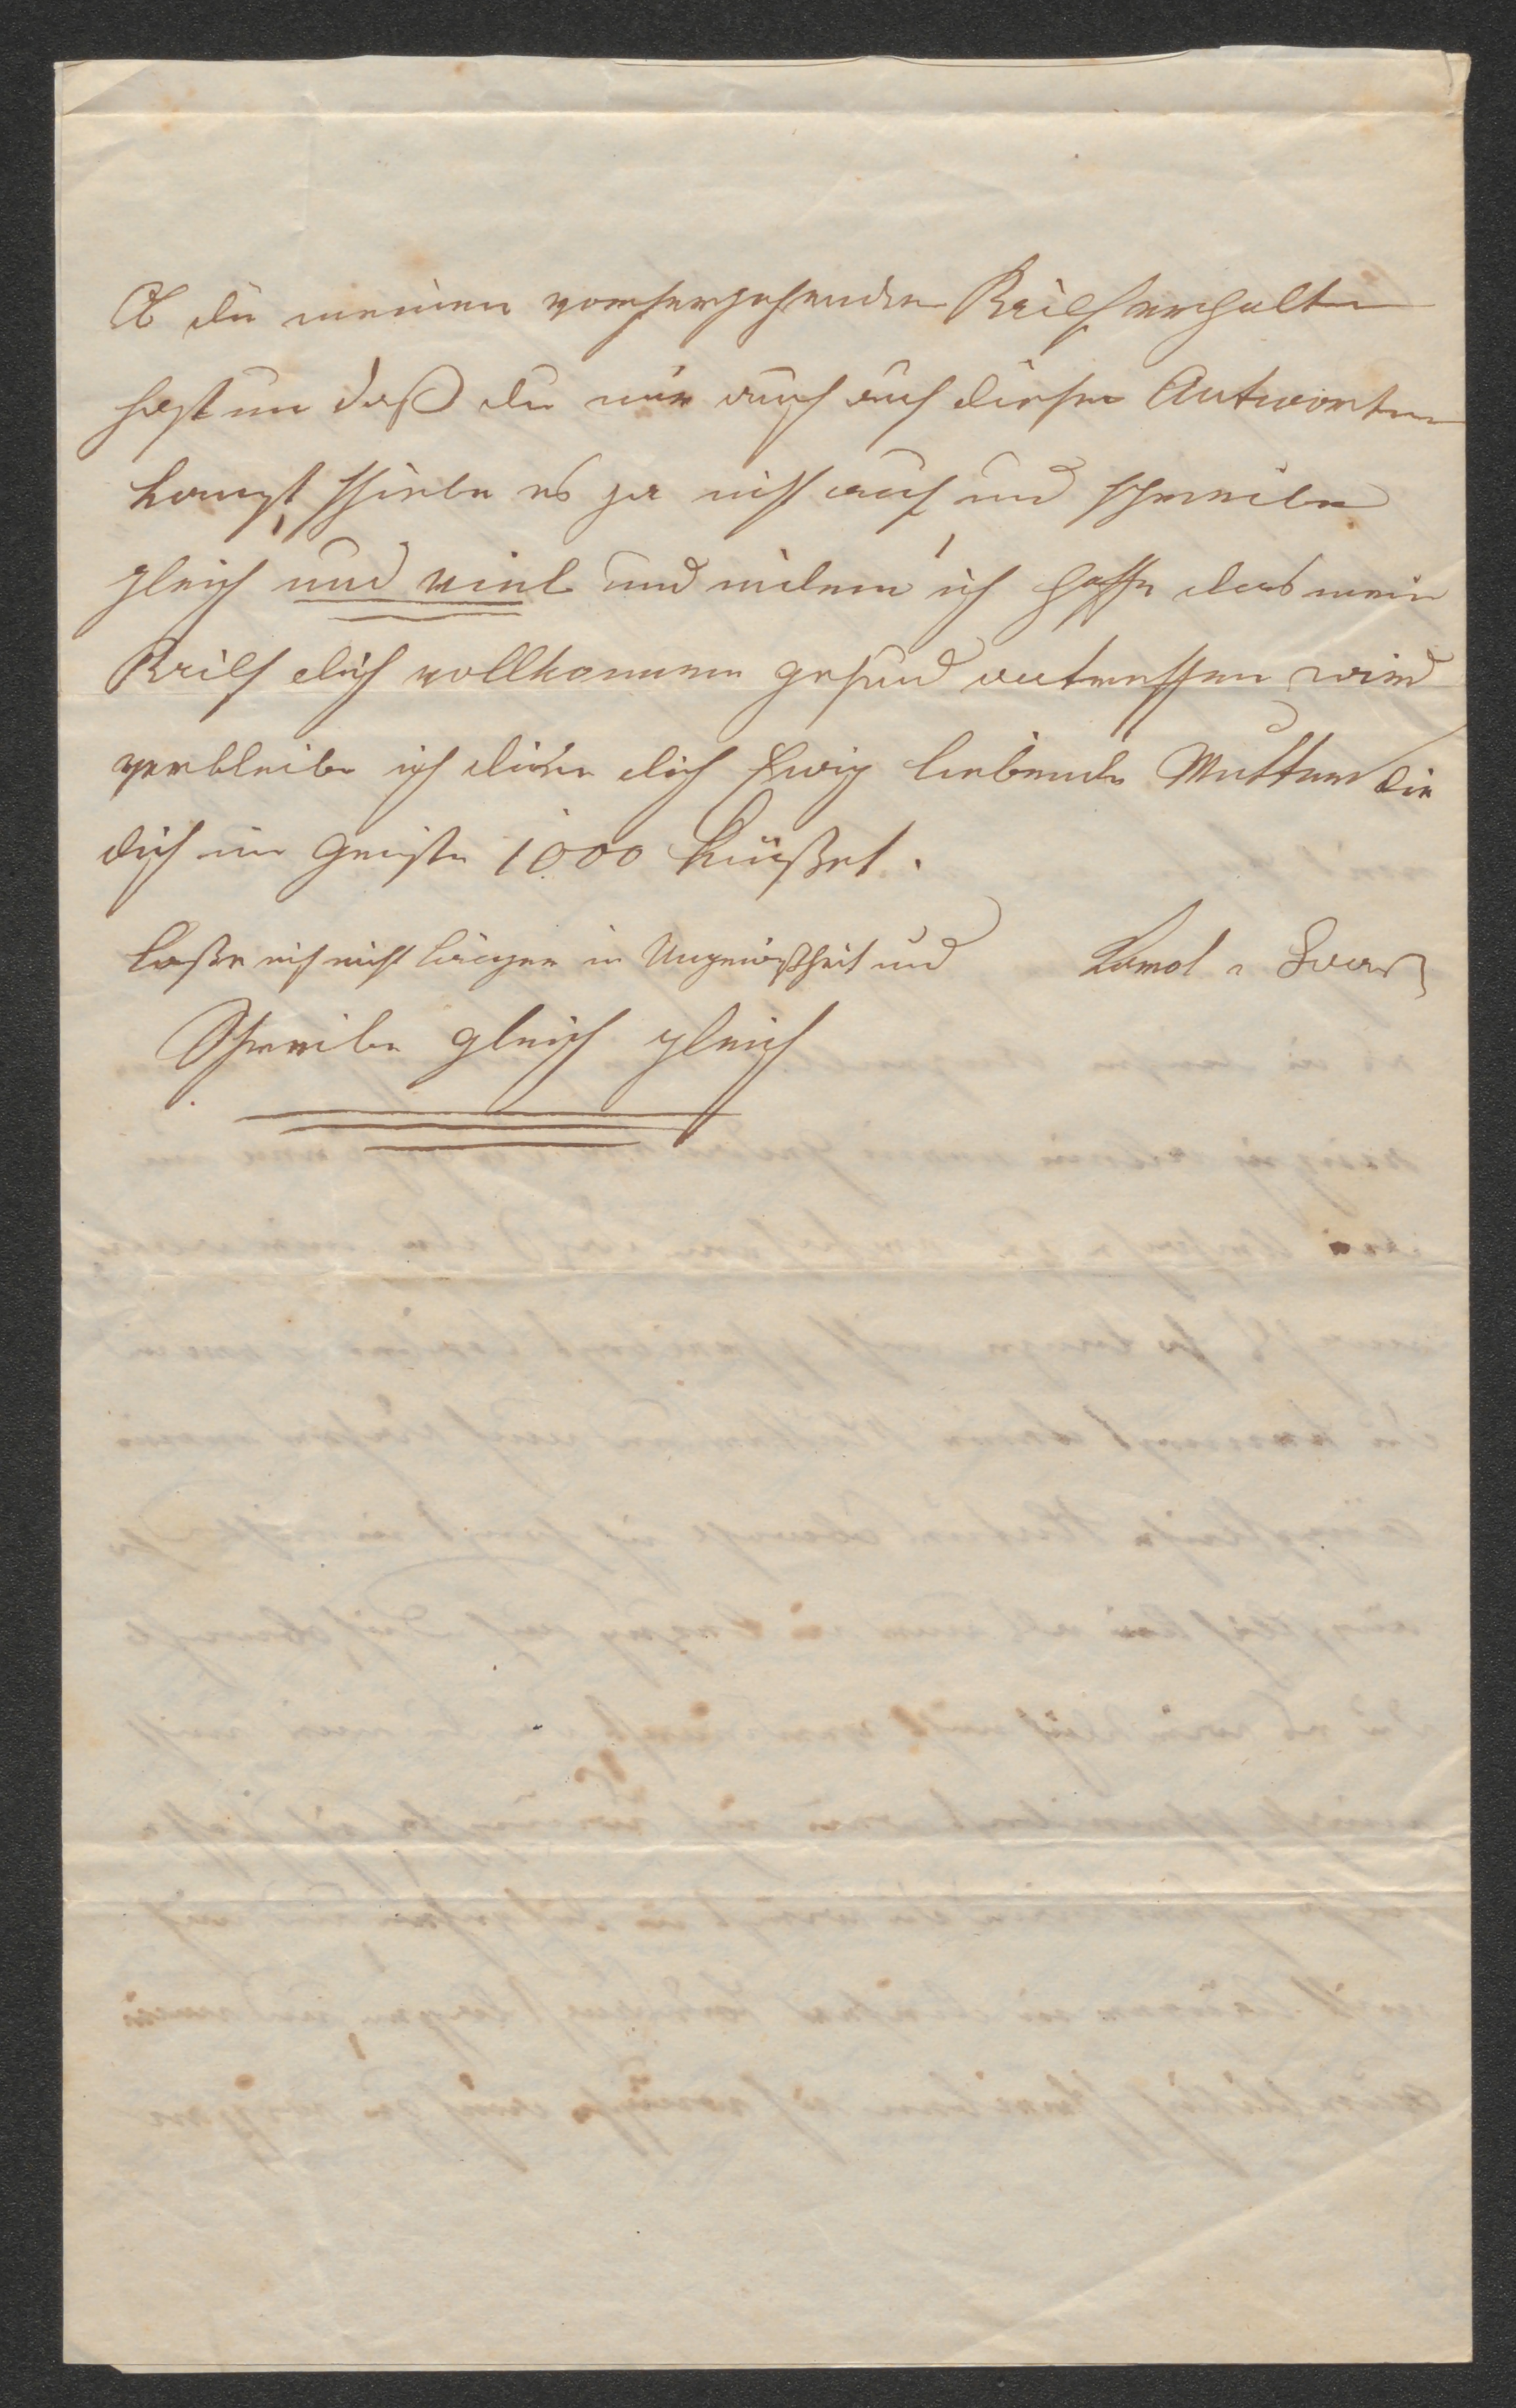 Ob du meinen vorhergehenden Brief erhalten
hast un daß du mir auch auf diesen Antworten
kanst, schiebe es ja nicht auf und schreibe
gleich und viel und indem ich hoffe das mein
Brief dich vollkommen gesund antreffen wird
verbleibe ich deine dich Ewig liebende Mutter die
dich im Geiste 1000 küßet.
laße mich nicht länger in Ungewißheit und
Schreibe gleich gleich